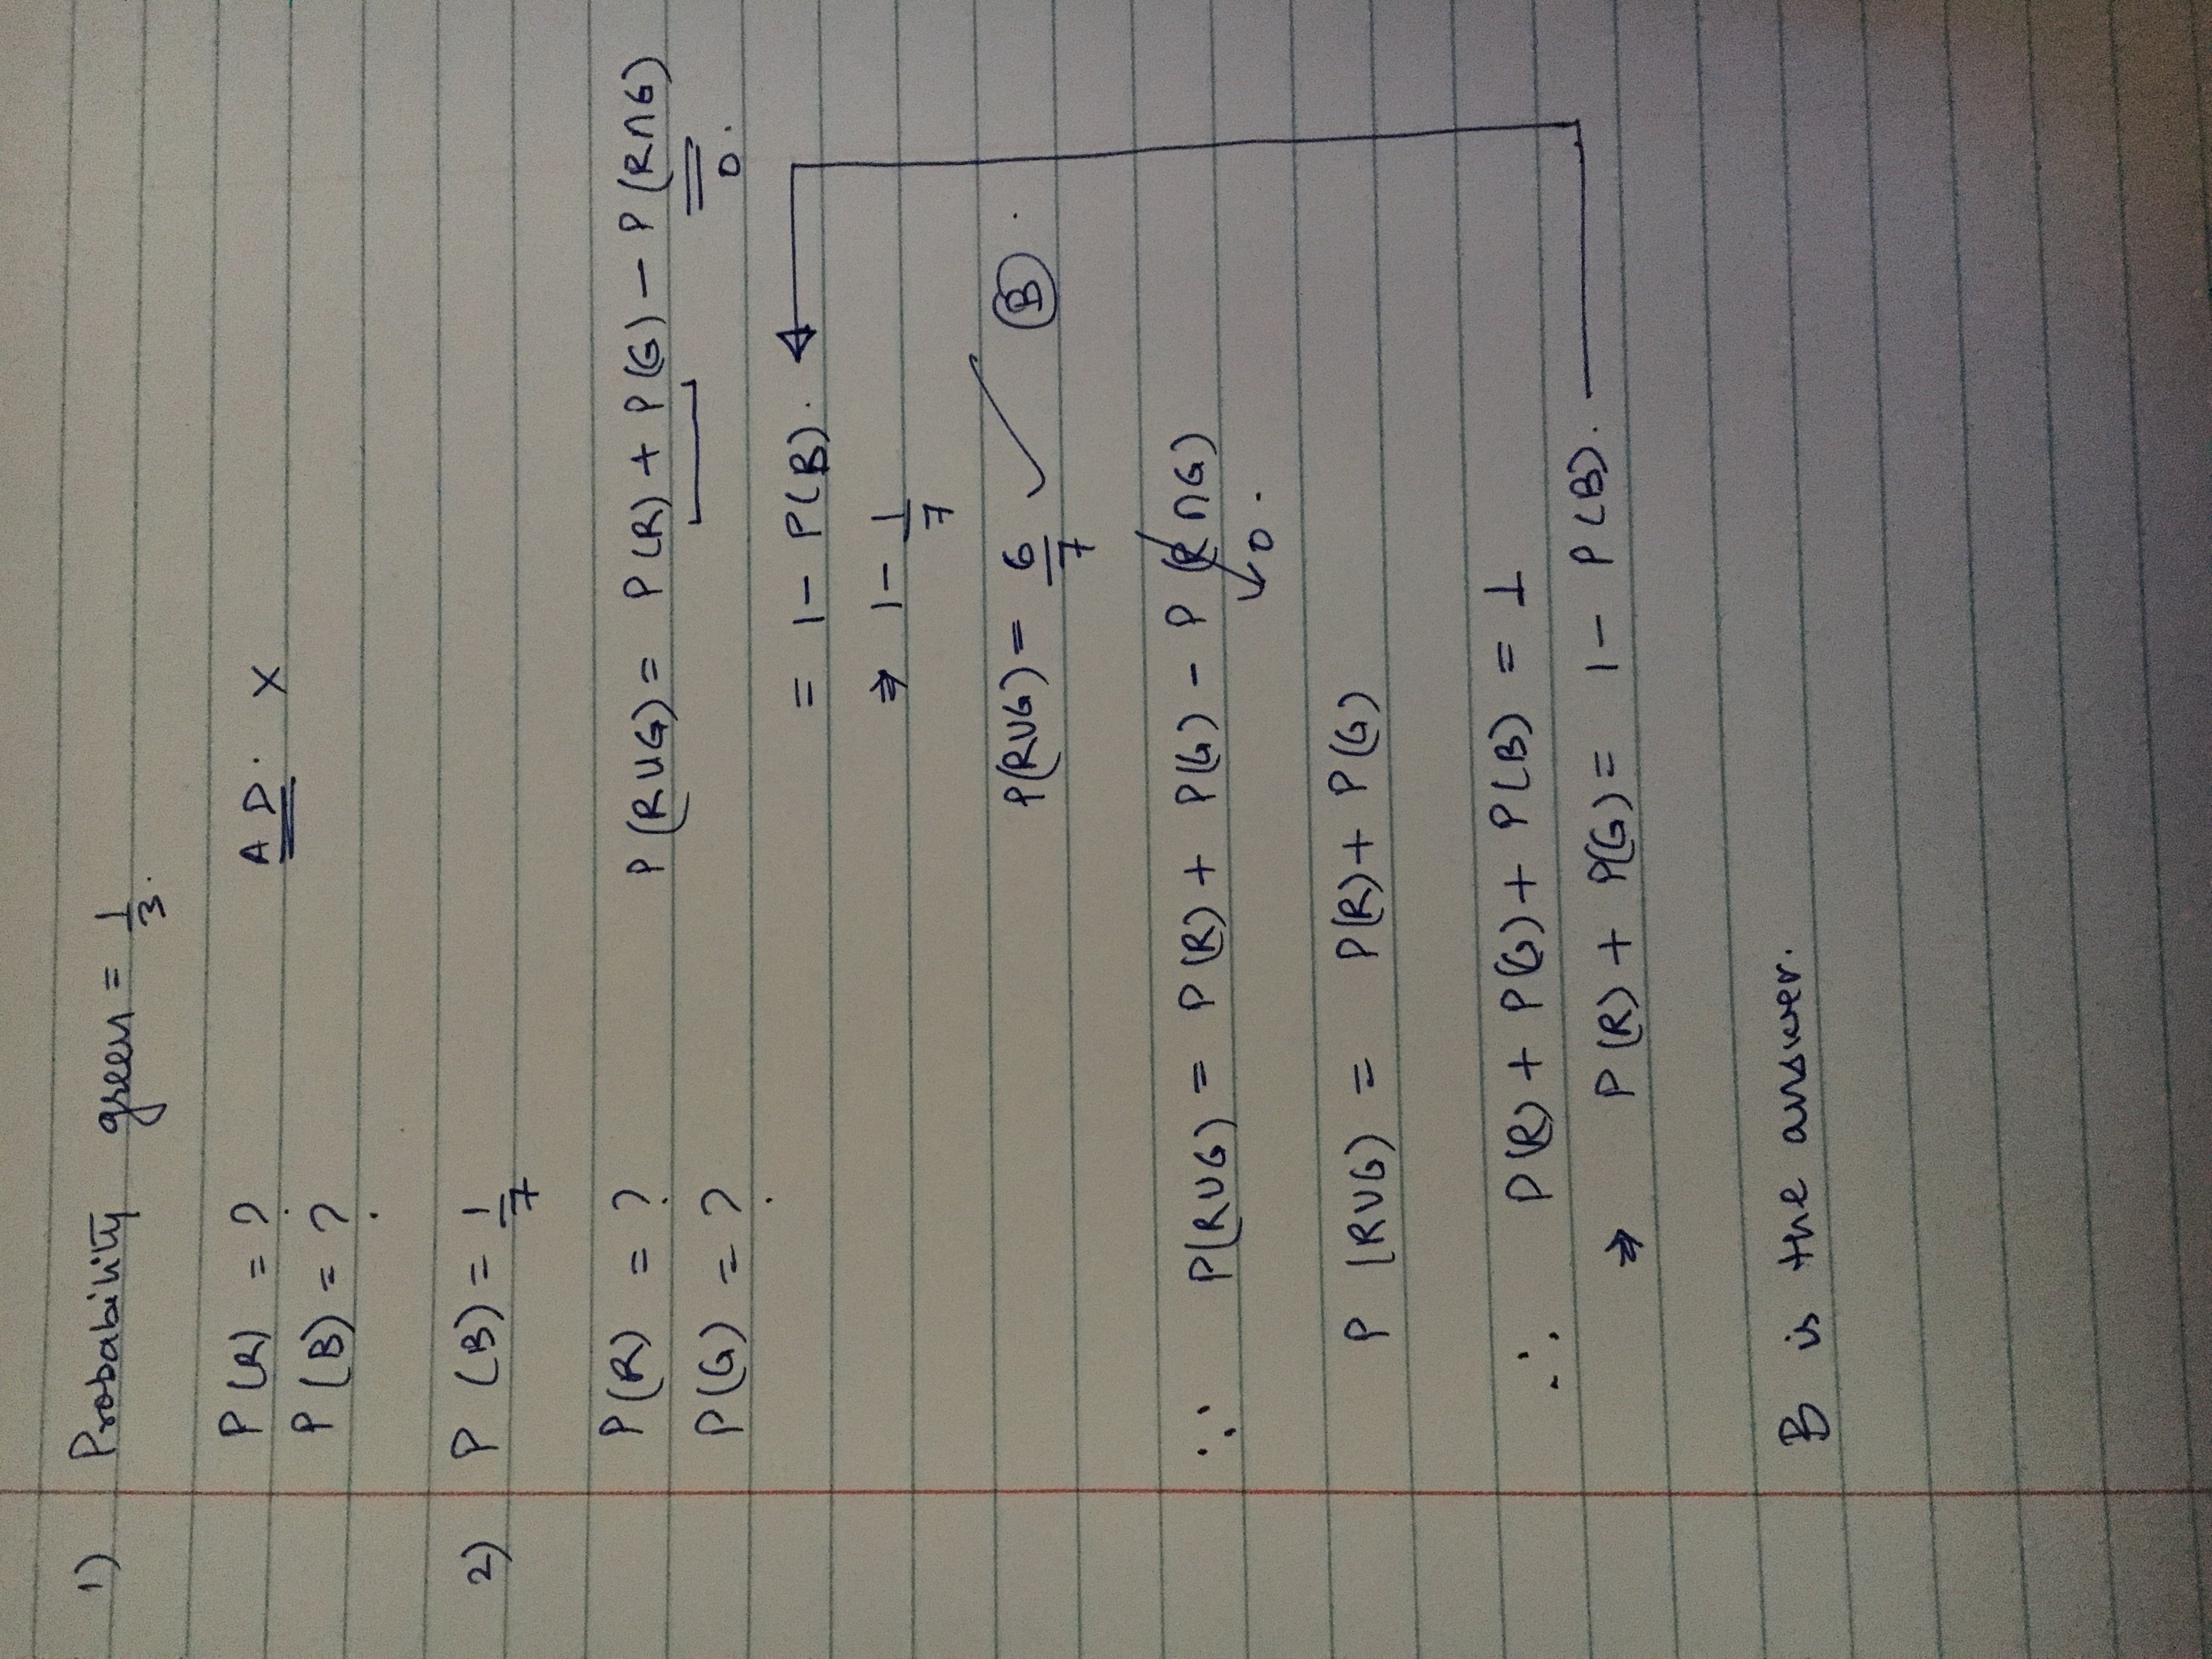 1) Probability green = 1/3.
P(R) = ?
A D. X
P(B) = ?
2) P(B) = 1/7
P(R) = ?
P(RUG) = P(R) + P(G) - P(R∩G)
0.
P(G) = ?
= 1 - P(B).
⇒ 1 - 1/7
P(RUG) = 6/7 ✓ B.
∴ P(RUG) = P(R) + P(G) - P(R∩G)
↘ 0.
P(RUG) = P(R) + P(G)
∴ P(R) + P(G) + P(B) = 1
⇒ P(R) + P(G) = 1 - P(B).
B is the answer.